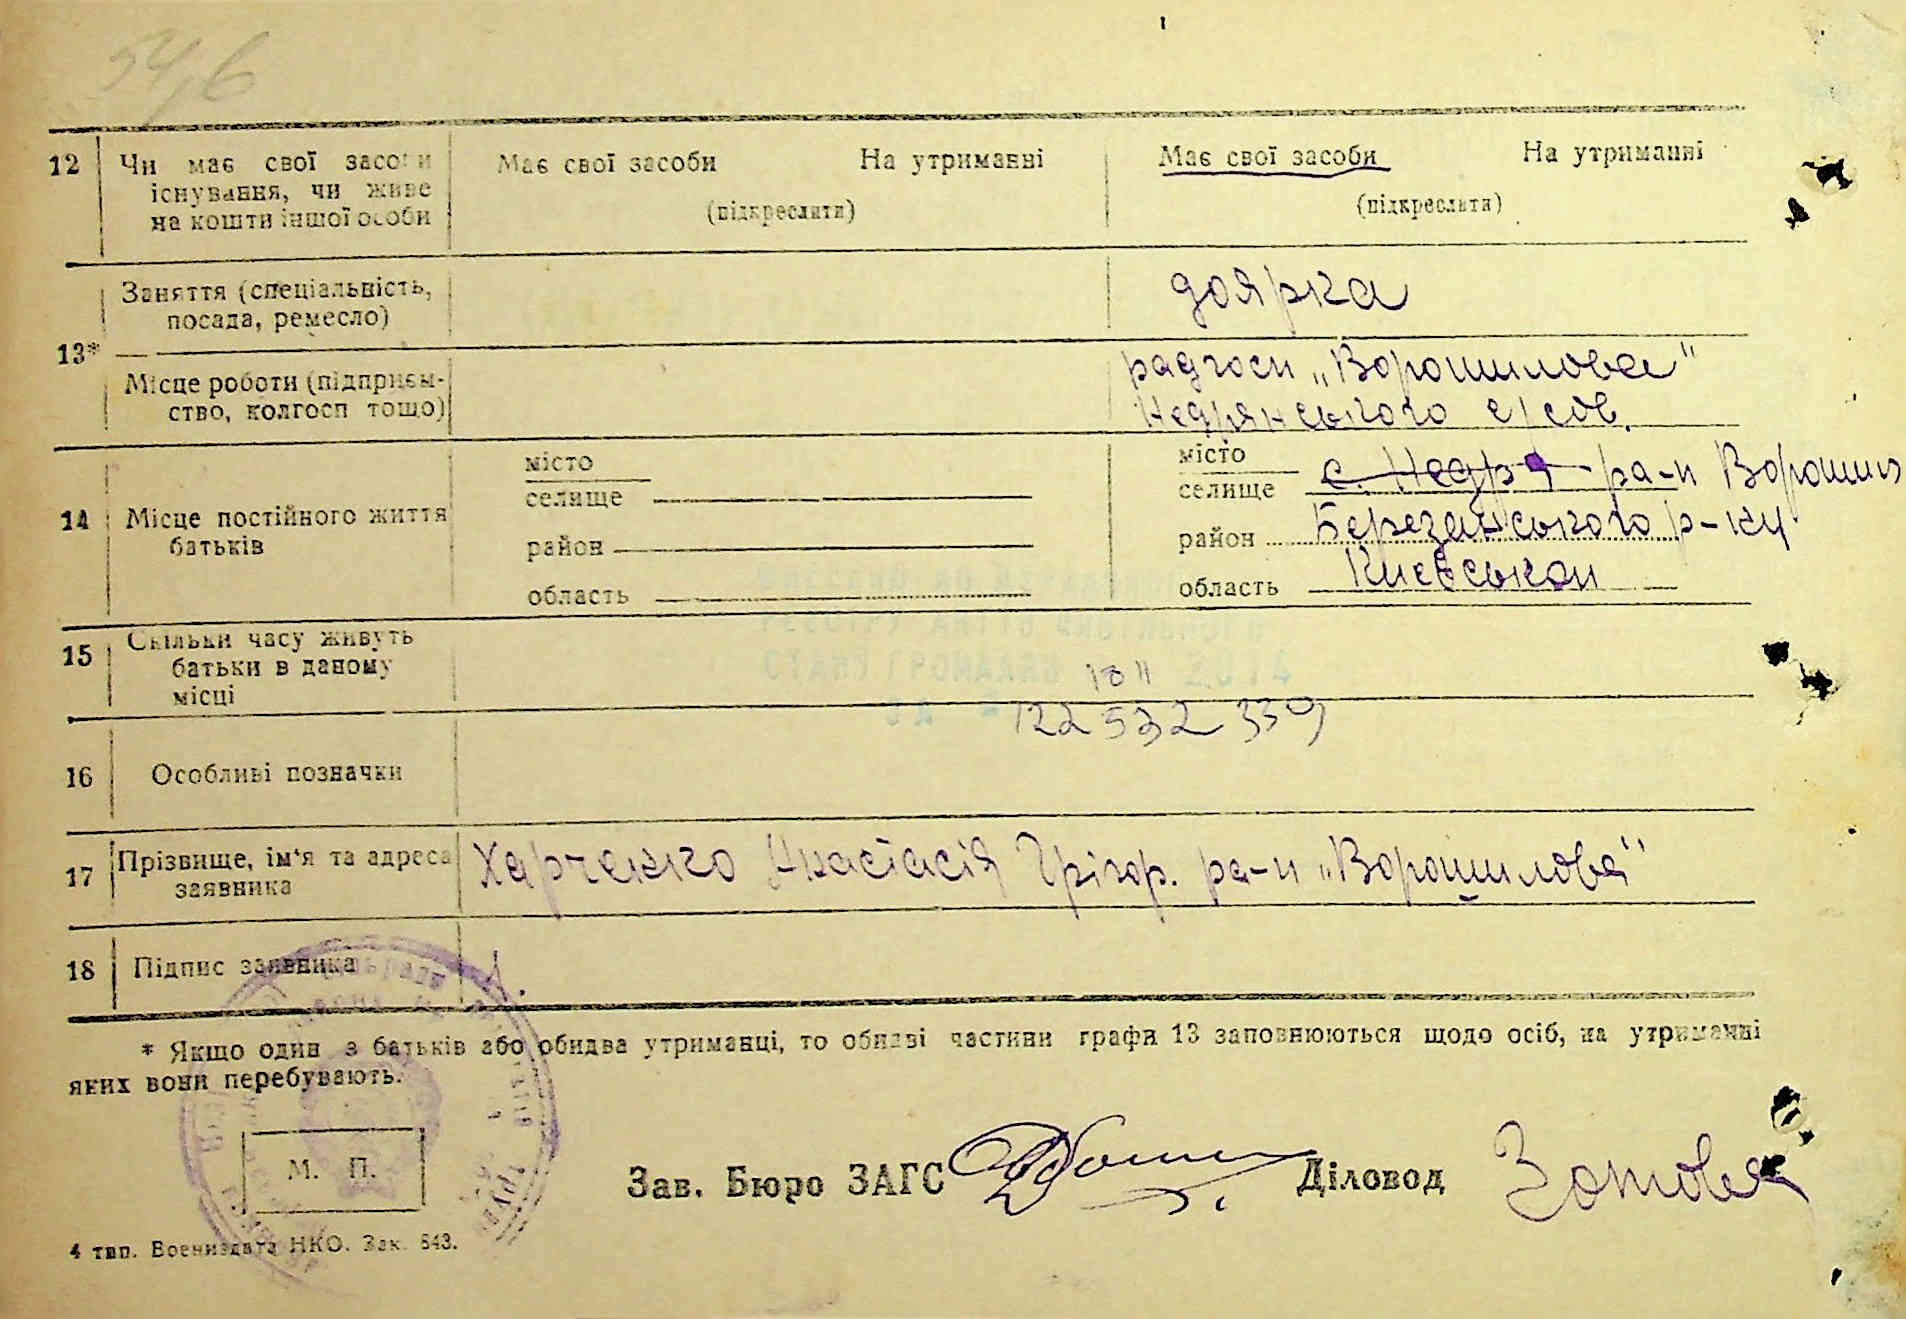 54,6
12 Чи має свої засоби Має свої засоби На утриманні Має свої засоби На утриманні
існування, чи живе
на кошти іншої особи (підкреслити) (підкреслити)
Заняття (спеціальність, доярка
посада, ремесло)
13*
Місце роботи (підприєм- радгосп „Ворошилова"
ство, колгосп тощо) Недрянського с/сов.
14 Місце постійного життя
батьків
місто
селище
район
область
місто
селище с. Недря ра-п Ворошил
район Березанського р-ну
область Києвскои
15 Скільки часу живуть
батьки в даному
місці
СТАНУ ГРОМАДЯН 2014
122 532 339
16 Особливі позначки
17 Прізвище, ім'я та адреса Харченко Анастасія Грігор. ра-п „Ворошилова"
заявника
18 Підпис заявника
* Якщо один з батьків або обидва утриманці, то обидві частини графи 13 заповнюються щодо осіб, на утриманні
яких вони перебувають.
М. П.
Зав. Бюро ЗАГС Діловод Зотова
4 тип. Воениздата НКО. Зак. 643.